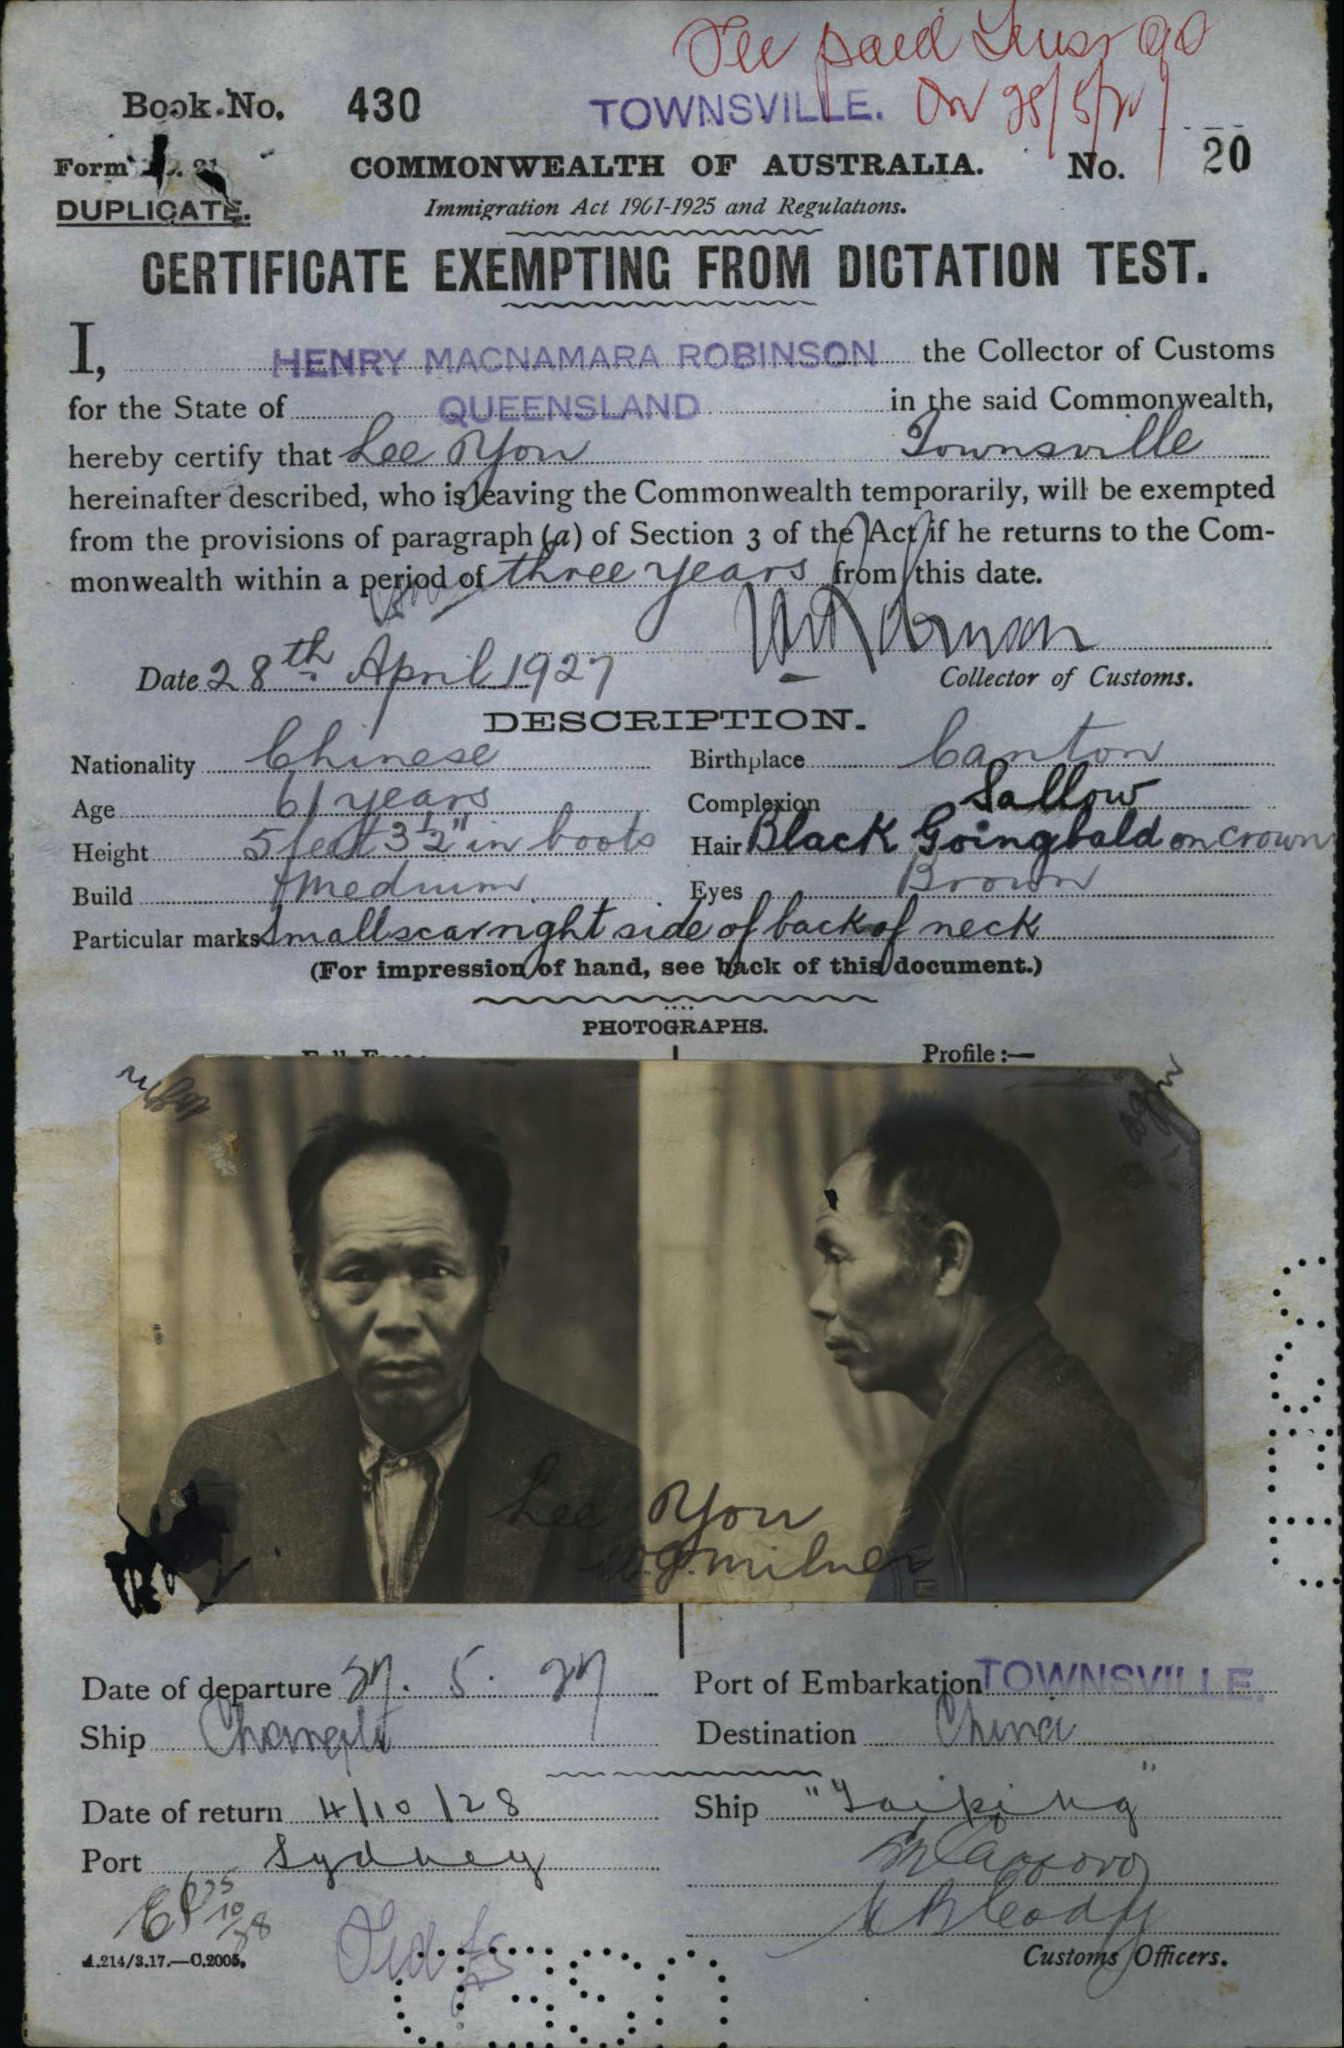 Fee paid
Book No. 430 TOWNSVILLE. On 28/5/27
Form 21.
COMMONWEALTH OF AUSTRALIA. No. 20
DUPLICATE.
Immigration Act 1901-1925 and Regulations.
CERTIFICATE EXEMPTING FROM DICTATION TEST.
I, HENRY MACNAMARA ROBINSON the Collector of Customs
for the State of QUEENSLAND in the said Commonwealth,
hereby certify that Lee You Townsville
hereinafter described, who is leaving the Commonwealth temporarily, will be exempted
from the provisions of paragraph (a) of Section 3 of the Act if he returns to the Com-
monwealth within a period of three years from this date.
Date 28th April 1927
Collector of Customs.
DESCRIPTION.
Nationality Chinese Birthplace Canton
Age 61 years Complexion Sallow
Height 5 feet 3 1/2" in boots Hair Black Going bald on crown
Build Medium Eyes Brown
Particular marks Small scar right side of back of neck
(For impression of hand, see back of this document.)
PHOTOGRAPHS.
Full Face:
Profile:—
Lee You
W.J. Milner
Date of departure 27. 5. 27 Port of Embarkation TOWNSVILLE.
Ship Changte Destination China
Date of return 4/10/28 Ship "Taiping"
Port Sydney
25/10/28
A.214/3.17.—C.2005.
Customs Officers.